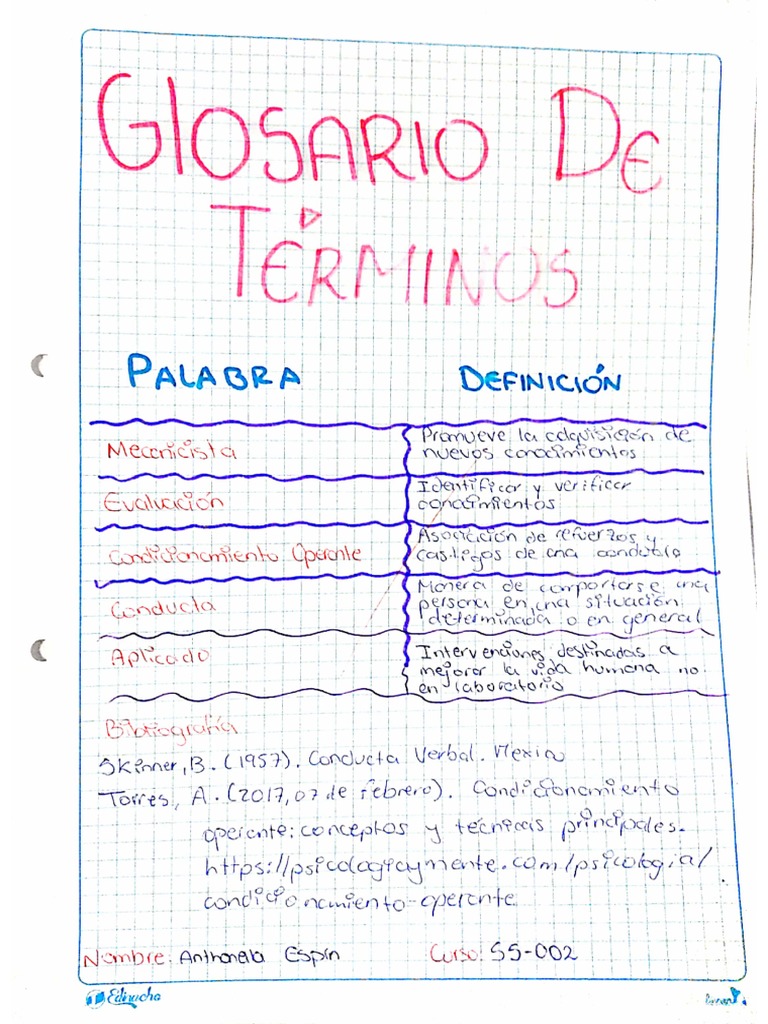 GlOSARIO DE
TÉRMINOS
PALABRA
DEFINICIÓN
Mecanicista
Promueve la adquisición de
nuevos conocimientos
Evaluación
Identificar y verificar
conocimientos
Condicionamiento Operante
Asociación de refuerzos y
castigos de una conducta
Conducta
Manera de comportarse una
persona en una situación
determinada o en general
Aplicado
Intervenciones destinadas a
mejorar la vida humana no
en laboratorio
Bibliografía
Skinner, B. (1957). Conducta Verbal. Mexico
Torres, A. (2017, 07 de febrero). Condicionamiento
operante: conceptos y técnicas principales.
https://psicologiaymente.com/psicologia/
condicionamiento-operante
Nombre: Anthonela Espín
Curso: S5-002